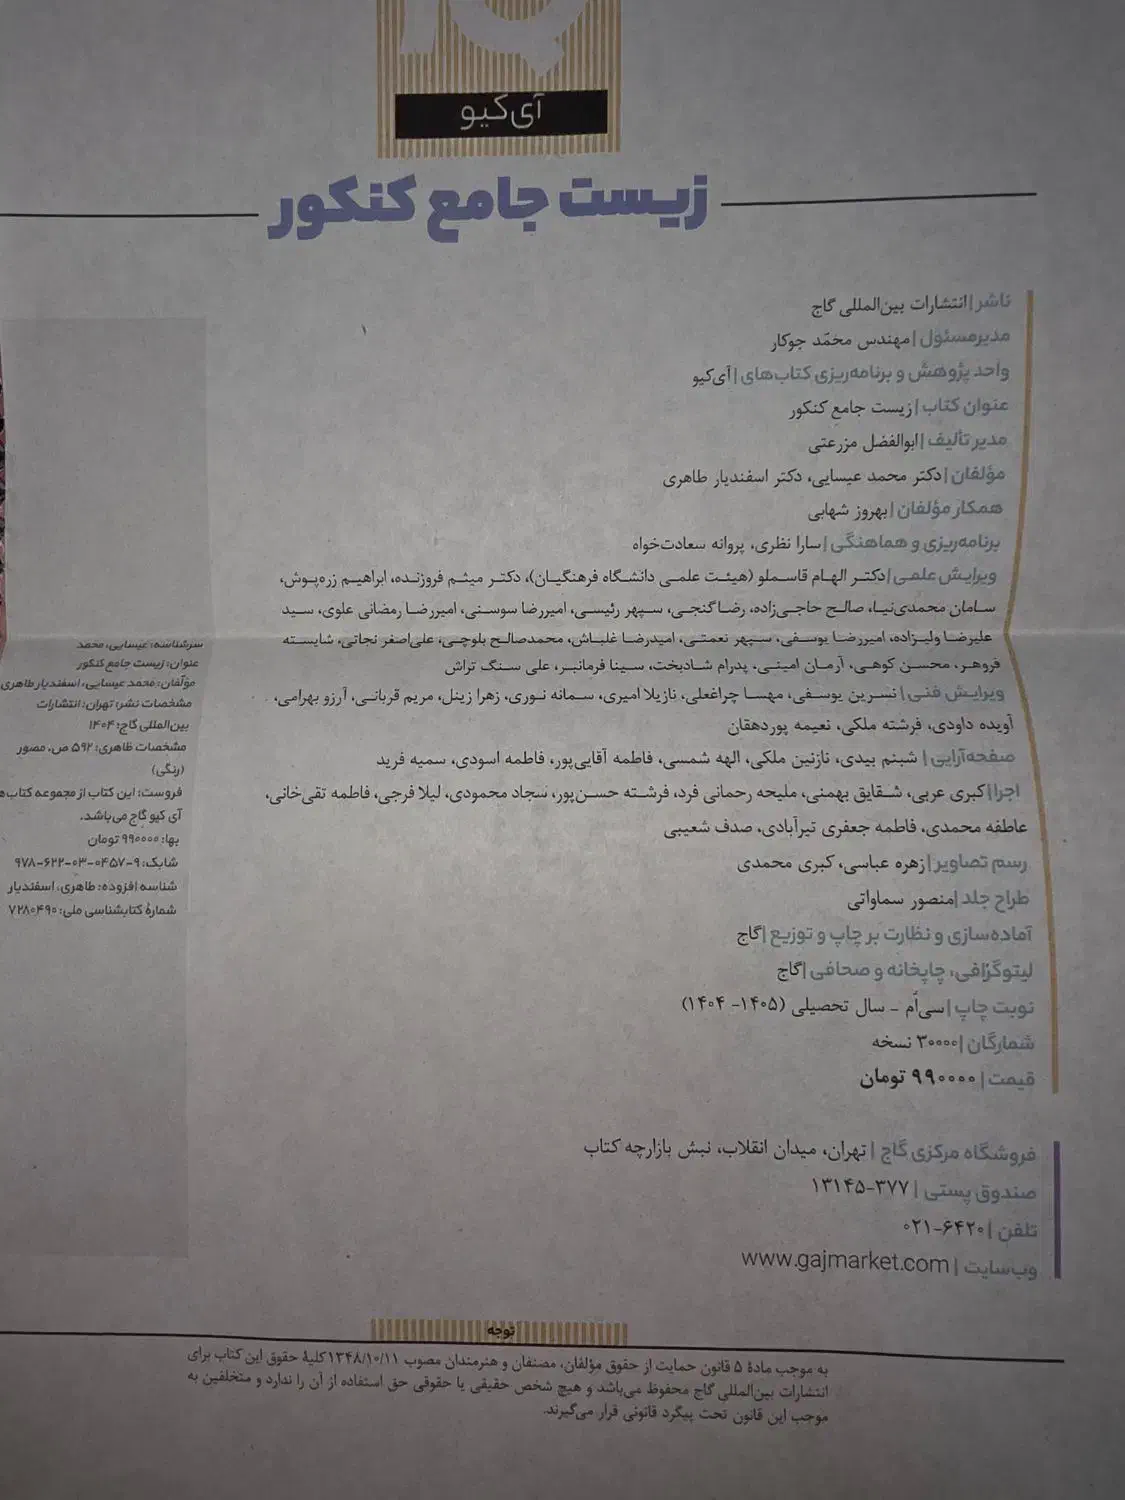 آی‌کیو
زیست جامع کنکور
ناشر | انتشارات بین‌المللی گاج
مدیرمسئول | مهندس محمّد جوکار
واحد پژوهش و برنامه‌ریزی کتاب‌های | آی‌کیو
عنوان کتاب | زیست جامع کنکور
مدیر تألیف | ابوالفضل مزرعتی
مؤلفان | دکتر محمد عیسایی، دکتر اسفندیار طاهری
همکار مؤلفان | بهروز شهابی
برنامه‌ریزی و هماهنگی | سارا نظری، پروانه سعادت‌خواه
ویرایش علمی | دکتر الهام قاسملو (هیئت علمی دانشگاه فرهنگیان)، دکتر میثم فروزنده، ابراهیم زره‌پوش،
سامان محمدی‌نیا، صالح حاجی‌زاده، رضا گنجی، سپهر رئیسی، امیررضا سوسنی، امیررضا رمضانی علوی، سید
علیرضا ولیزاده، امیررضا یوسفی، سپهر نعمتی، امیدرضا غلباش، محمدصالح بلوچی، علی‌اصغر نجاتی، شایسته
فروهر، محسن کوهی، آرمان امینی، پدرام شادبخت، سینا فرمانبر، علی سنگ تراش
ویرایش فنی | نسرین یوسفی، مهسا چراغعلی، نازیلا امیری، سمانه نوری، زهرا زینل، مریم قربانی، آرزو بهرامی،
آویده داودی، فرشته ملکی، نعیمه پوردهقان
صفحه‌آرایی | شبنم بیدی، نازنین ملکی، الهه شمسی، فاطمه آقایی‌پور، فاطمه اسودی، سمیه فرید
اجرا | کبری عربی، شقایق بهمنی، ملیحه رحمانی فرد، فرشته حسن‌پور، سجاد محمودی، لیلا فرجی، فاطمه تقی‌خانی،
عاطفه محمدی، فاطمه جعفری تیرآبادی، صدف شعیبی
رسم تصاویر | زهره عباسی، کبری محمدی
طراح جلد | منصور سماواتی
آماده‌سازی و نظارت بر چاپ و توزیع | گاج
لیتوگرافی، چاپخانه و صحافی | گاج
نوبت چاپ | سی‌اُم - سال تحصیلی (۱۴۰۵- ۱۴۰۴)
شمارگان | ۳۰۰۰۰ نسخه
قیمت | ۹۹۰۰۰۰ تومان
فروشگاه مرکزی گاج | تهران، میدان انقلاب، نبش بازارچه کتاب
صندوق پستی | ۳۷۷-۱۳۱۴۵
تلفن | ۰۲۱-۶۴۲۰
وب‌سایت | www.gajmarket.com
سرشناسه: عیسایی، محمد
عنوان: زیست جامع کنکور
مؤلفان: محمد عیسایی، اسفندیار طاهری
مشخصات نشر: تهران: انتشارات
بین‌المللی گاج؛ ۱۴۰۴
مشخصات ظاهری: ۵۹۲ ص، مصور
(رنگی)
فروست: این کتاب از مجموعه
آی کیو گاج می‌باشد.
بها: ۹۹۰۰۰۰ تومان
شابک: ۹-۰۴۵۷-۰۳-۶۲۲-۹۷۸
شناسه افزوده: طاهری، اسفندیار
شمارهٔ کتابشناسی ملی: ۷۲۸۰۴۹۰
توجه
به موجب مادهٔ ۵ قانون حمایت از حقوق مؤلفان، مصنفان و هنرمندان مصوب ۱۳۴۸/۱۰/۱۱ کلیهٔ حقوق این کتاب برای
انتشارات بین‌المللی گاج محفوظ می‌باشد و هیچ شخص حقیقی یا حقوقی حق استفاده از آن را ندارد و متخلفین به
موجب این قانون تحت پیگرد قانونی قرار می‌گیرند.